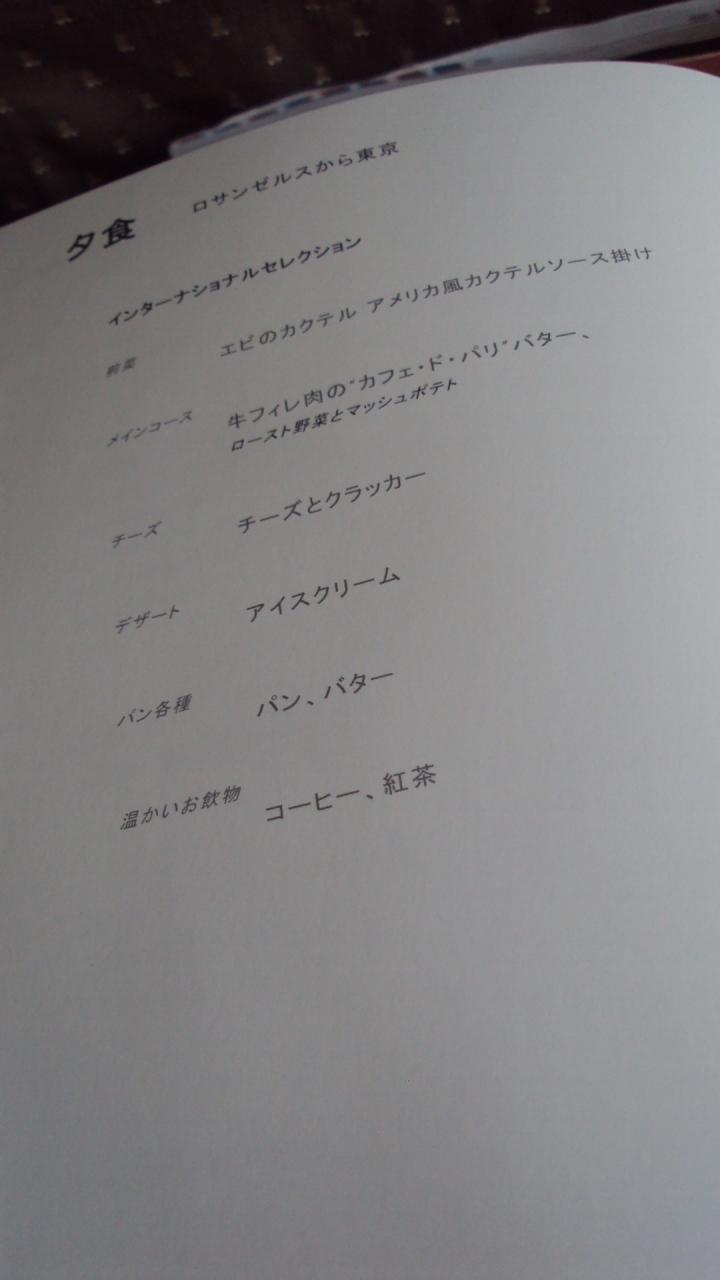 夕食 ロサンゼルスから東京
インターナショナルセレクション
前菜 エビのカクテル アメリカ風カクテルソース掛け
メインコース 牛フィレ肉の"カフェ・ド・パリ"バター、
ロースト野菜とマッシュポテト
チーズ チーズとクラッカー
デザート アイスクリーム
パン各種 パン、バター
温かいお飲物 コーヒー、紅茶